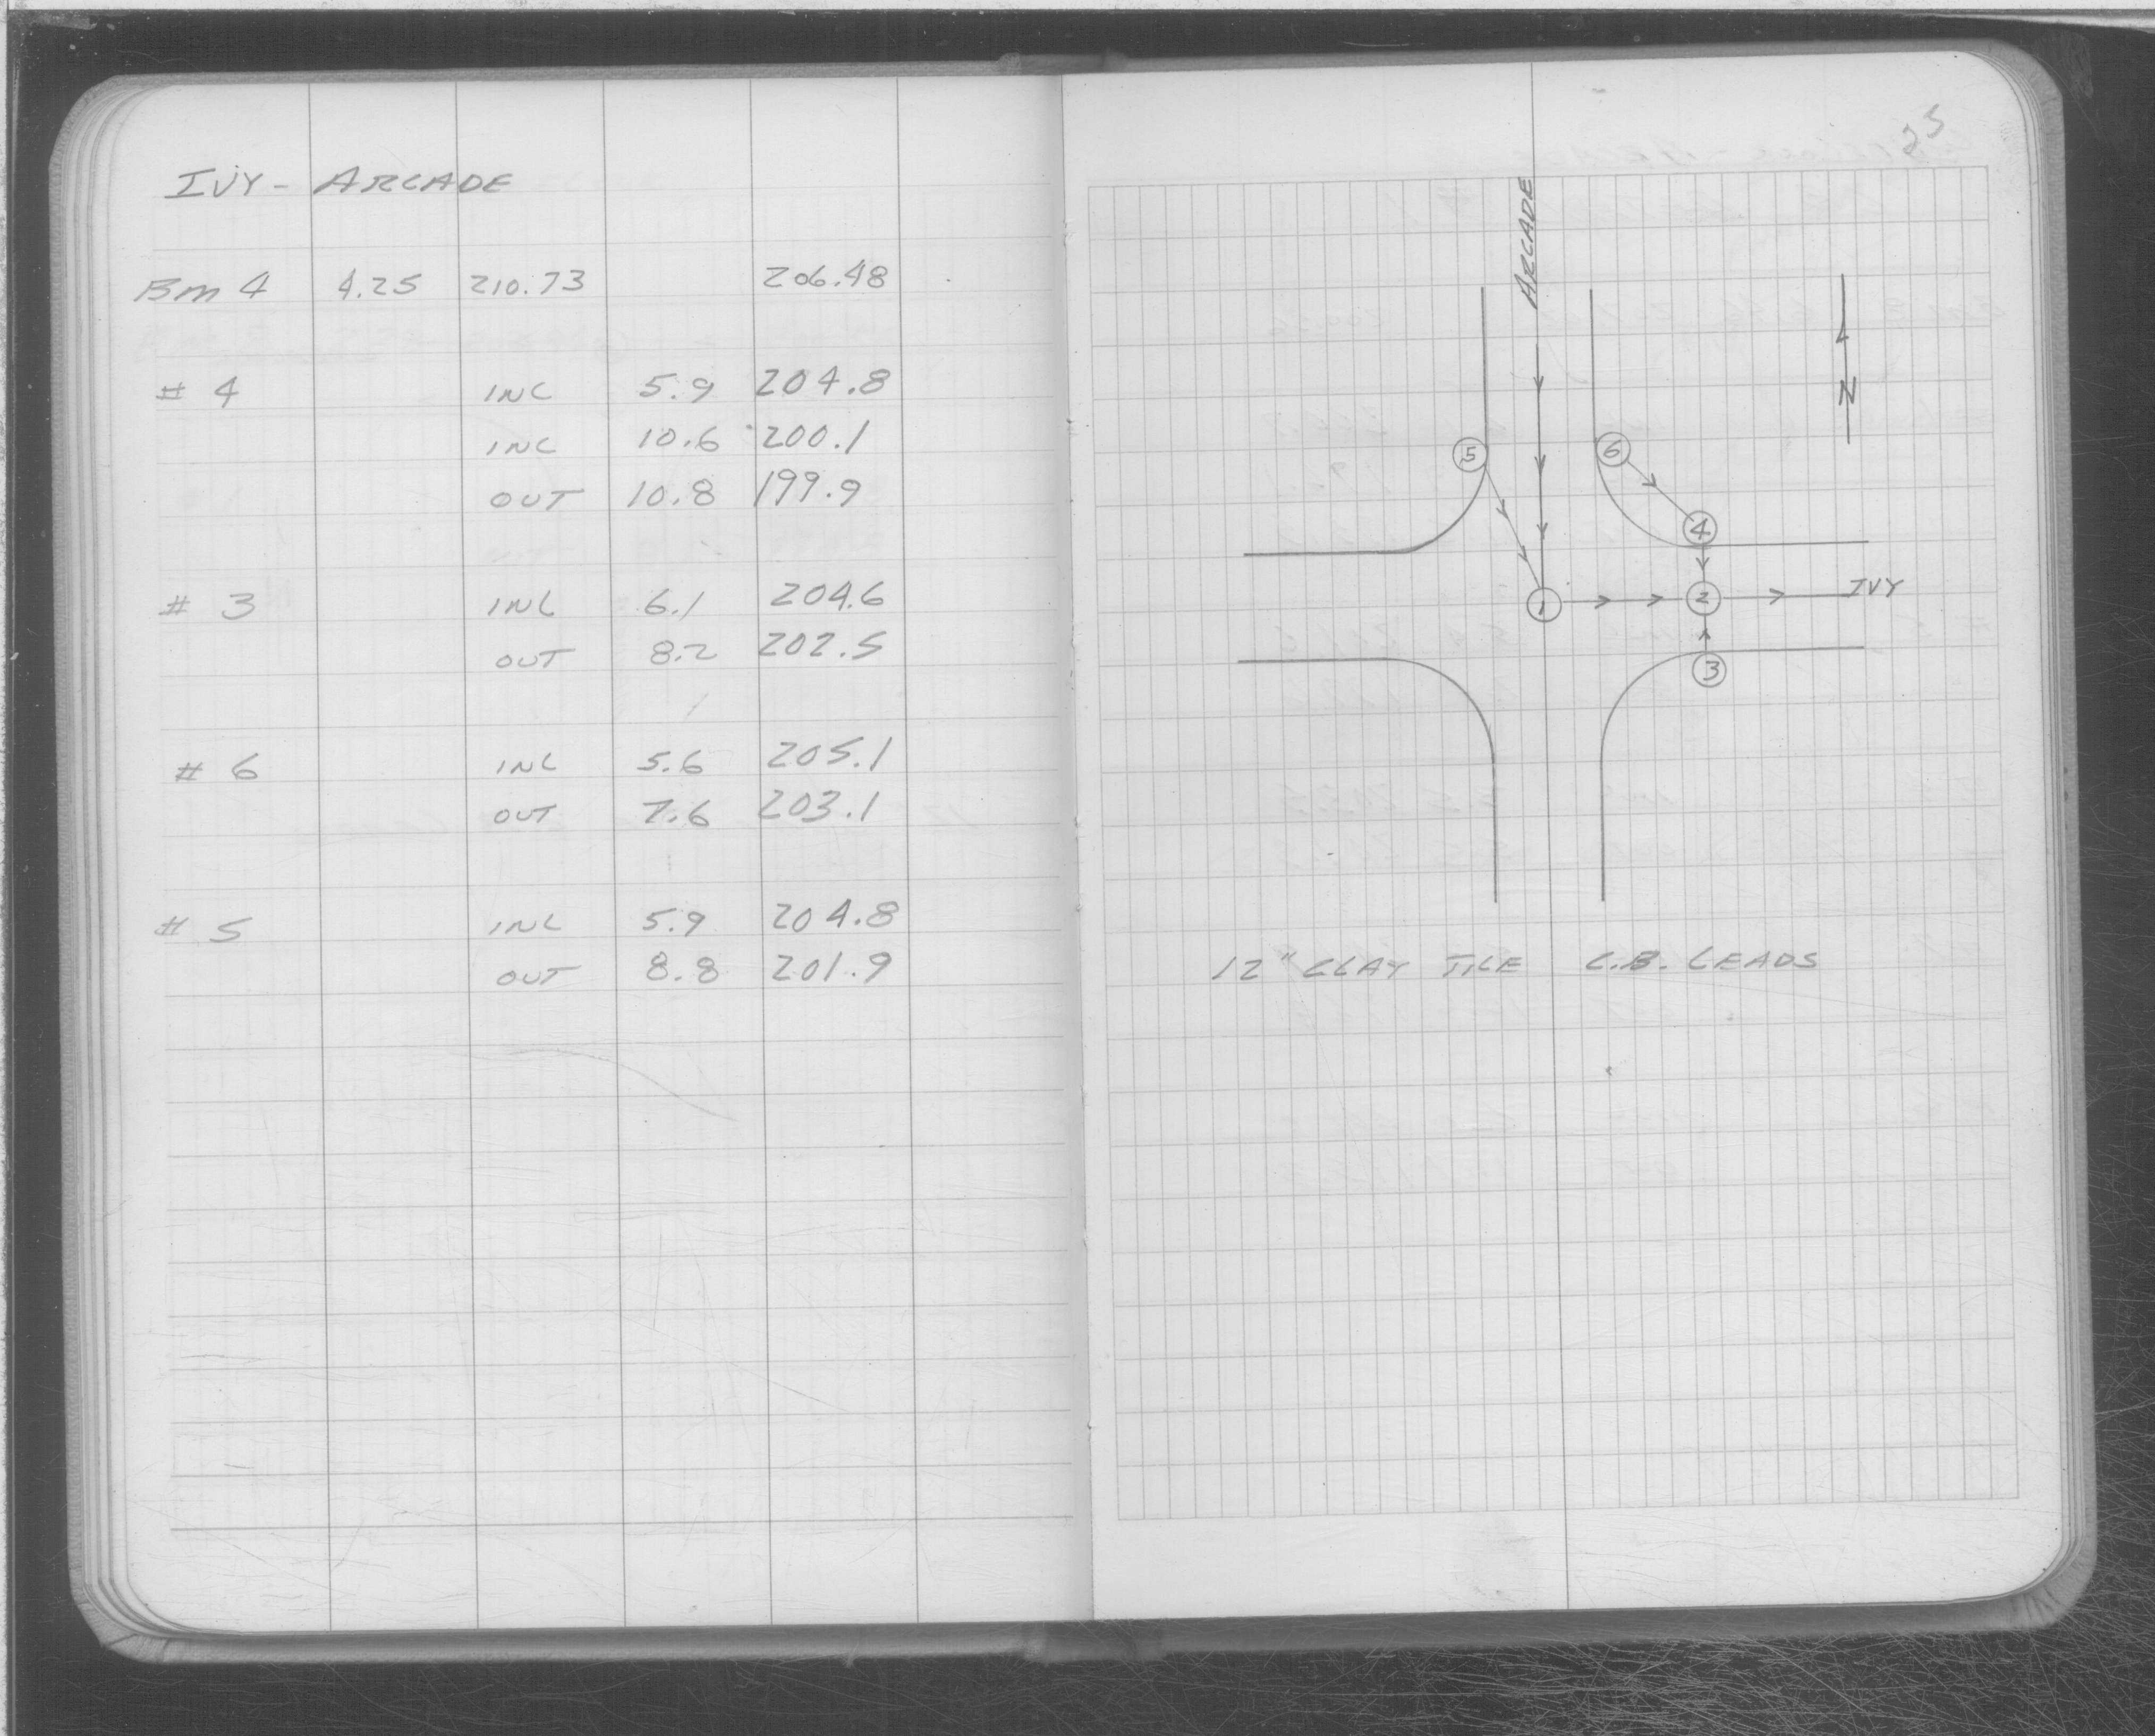 IVY - ARCADE
Bm 4 4.25 210.73 206.48
# 4 INC 5.9 204.8
INC 10.6 200.1
OUT 10.8 199.9
# 3 INC 6.1 204.6
OUT 8.2 202.5
# 6 INC 5.6 205.1
OUT 7.6 203.1
# 5 INC 5.9 204.8
OUT 8.8 201.9
25
ARCADE
N
5
6
4
1
2
IVY
3
12" CLAY TILE C.B. LEADS